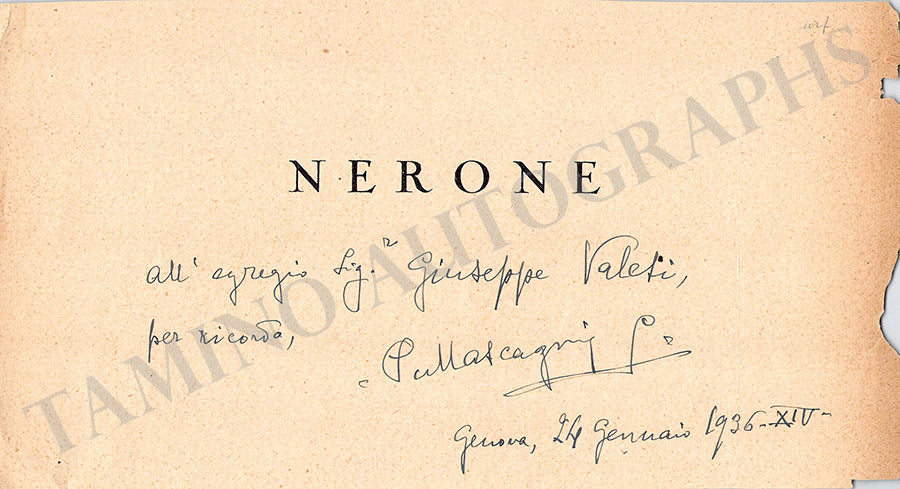 NERONE
all' egregio Sig.r Giuseppe Valeti,
per ricordo,
P. Mascagni
Genova, 24 Gennaio 1936-XIV-
TAMINO AUTOGRAPHS